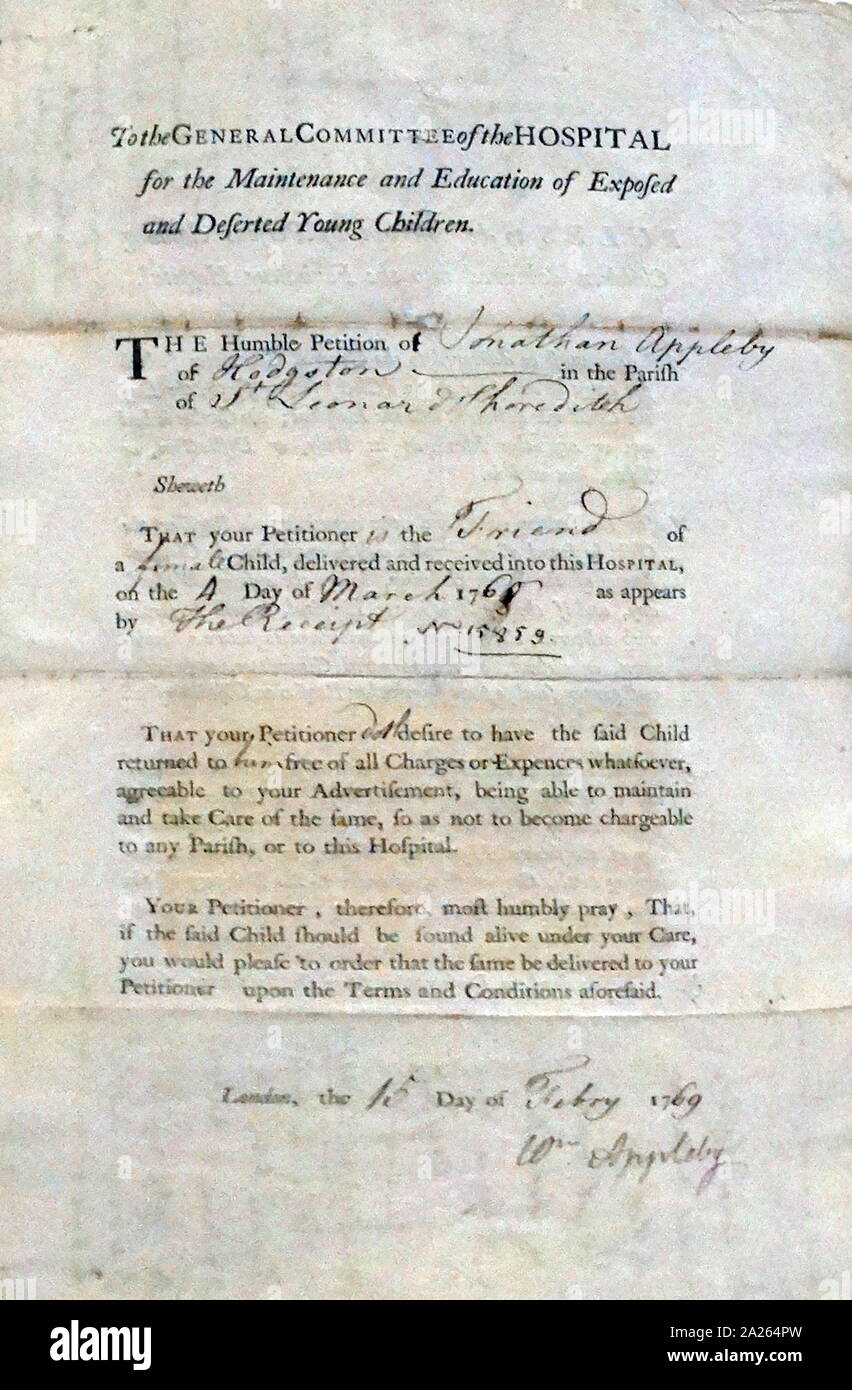 To the GENERAL COMMITTEE of the HOSPITAL
for the Maintenance and Education of Expoſed
and Deſerted Young Children.
THE Humble Petition of Jonathan Appleby
of Hodgston in the Pariſh
of St Leonard Shoreditch
Sheweth
THAT your Petitioner is the Friend of
a female Child, delivered and received into this HOSPITAL,
on the 4 Day of March 176 as appears
by The Receipt No 15859.
THAT your Petitioner doth deſire to have the ſaid Child
returned to him free of all Charges or Expences whatſoever,
agreeable to your Advertiſement, being able to maintain
and take Care of the ſame, ſo as not to become chargeable
to any Pariſh, or to this Hoſpital.
YOUR Petitioner, therefore, moſt humbly pray, That,
if the ſaid Child ſhould be found alive under your Care,
you would pleaſe to order that the ſame be delivered to your
Petitioner upon the Terms and Conditions aforeſaid.
London, the 15 Day of Febry 1769
Wm Appleby
alamy
Image ID: 2A264PW
www.alamy.com